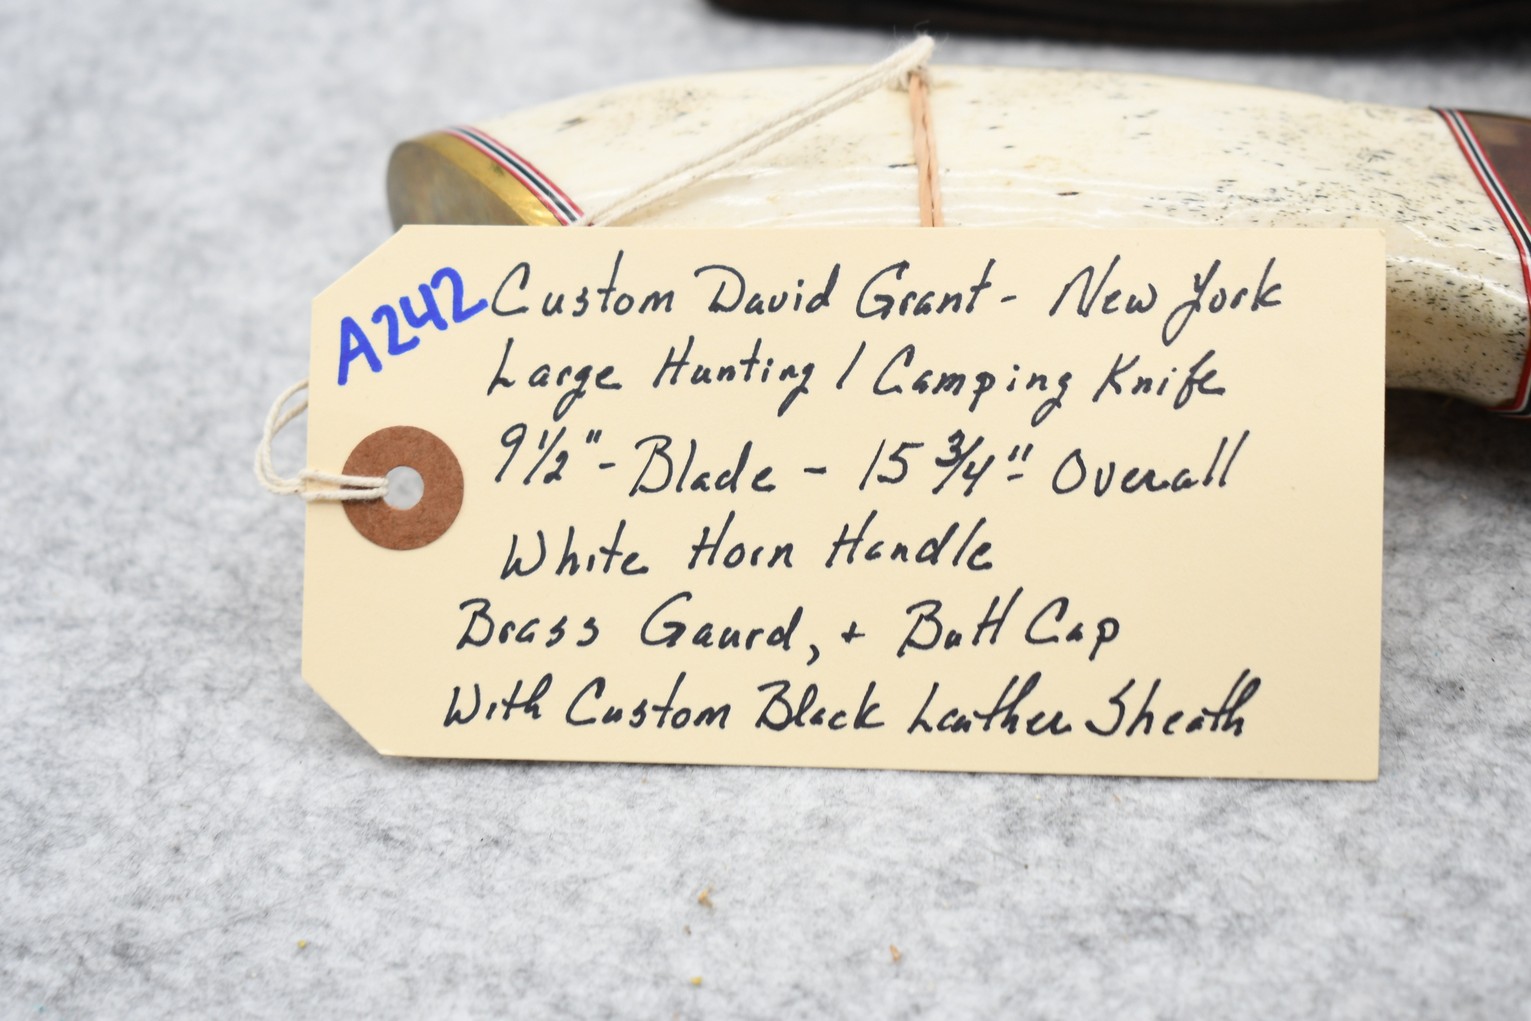 A242
Custom David Grant - New York
Large Hunting / Camping Knife
9 1/2" - Blade - 15 3/4" - Overall
White Horn Handle
Brass Gaurd, + Butt Cap
With Custom Black Leather Sheath